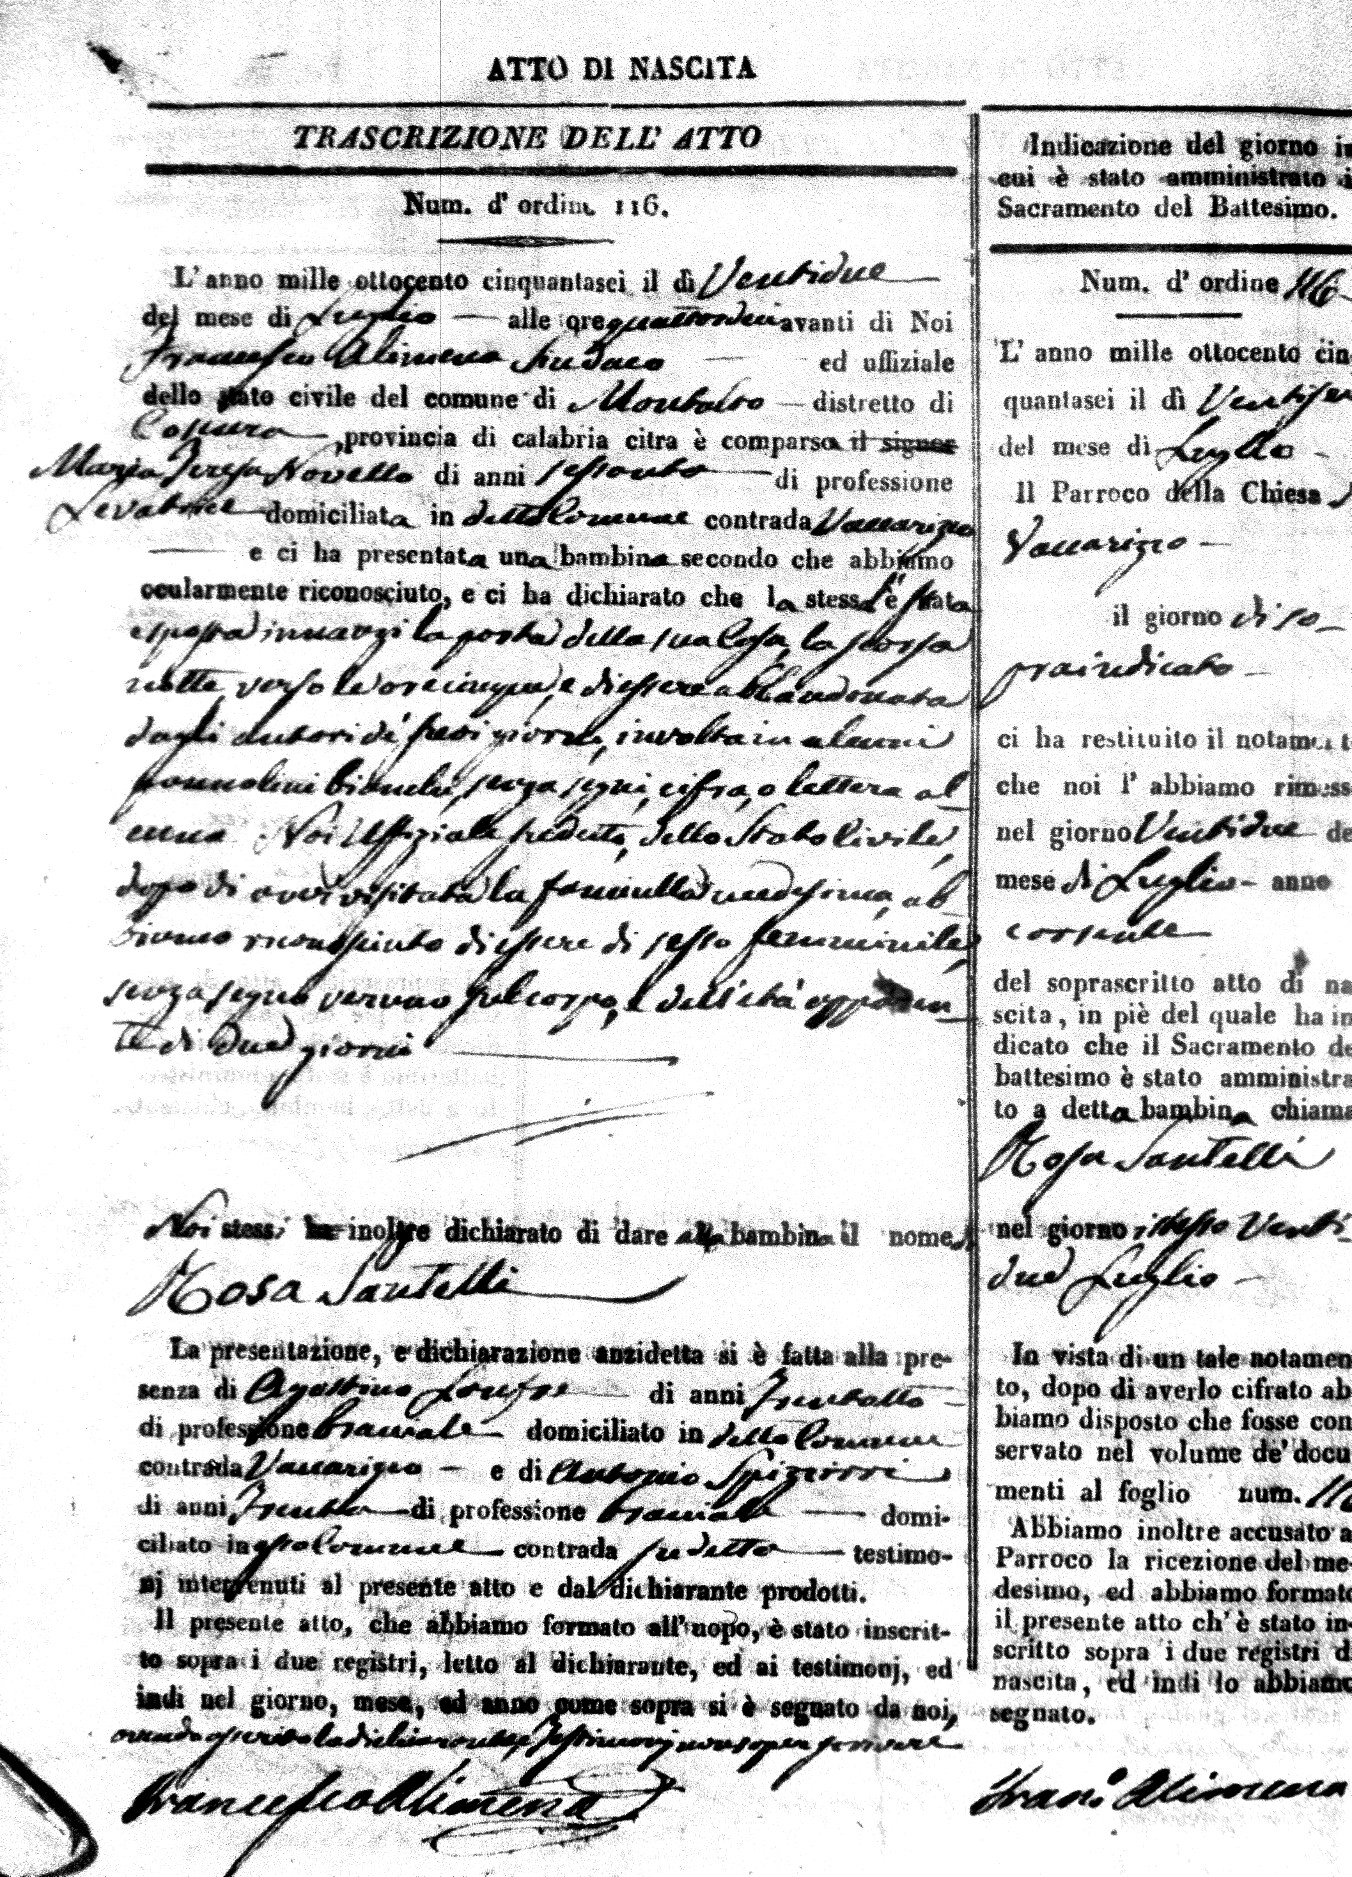 ATTO DI NASCITA
TRASCRIZIONE DELL' ATTO
Num. d' ordine 116.
L' anno mille ottocento cinquantasei il dì Ventidue
del mese di Luglio alle ore quattordici avanti di Noi
Francesco Alimena Sindaco ed uffiziale
dello stato civile del comune di Montalto distretto di
Cosenza, provincia di calabria citra è comparsa il signor
Maria Teresa Novello di anni sessanta di professione
Levatrice domiciliata in detto Comune contrada Vaccarizzo
e ci ha presentata una bambina secondo che abbiamo
ocularmente riconosciuto, e ci ha dichiarato che la stessa l'è stata
esposta innanzi la porta della sua Casa, la scorsa
notte verso le ore cinque, e di essere abbandonata
dagli autori de' suoi giorni, involta in alcuni
pannolini bianchi, senza segni, cifra, o lettera al
cuna. Noi Uffiziale sudetto, dello Stato Civile,
dopo di aver visitata la fanciulla medesima, ab
biamo riconosciuto di essere di sesso femminile,
senza segno veruno sul corpo, e dell'età apparen
te di due giorni
Noi stessi ha inoltre dichiarato di dare alla bambina il nome di
Rosa Santelli
La presentazione, e dichiarazione anzidetta si è fatta alla pre-
senza di Agostino di anni Trentotto
di professione bracciale domiciliato in detto Comune
contrada Vaccarizzo e di Antonio Spizzirri
di anni Trenta di professione bracciale domi-
ciliato in esso Comune contrada sudetta testimo-
nj intervenuti al presente atto e dal dichiarante prodotti.
Il presente atto, che abbiamo formato all' uopo, è stato inscrit-
to sopra i due registri, letto al dichiarante, ed ai testimonj, ed
indi nel giorno, mese, ed anno come sopra si è segnato da noi,
avendo asserito la dichiarante, e Testimonj non saper scrivere
Francesco Alimena
Indicazione del giorno in
cui è stato amministrato i
Sacramento del Battesimo.
Num. d' ordine 116
L' anno mille ottocento cin-
quantasei il dì
del mese di Luglio
Il Parroco della Chiesa
Vaccarizzo
il giorno di so
praindicato
ci ha restituito il notamen t
che noi l' abbiamo rimess
nel giorno Ventidue de
mese di Luglio anno
corrente
del soprascritto atto di na
scita, in piè del quale ha in
dicato che il Sacramento de
battesimo è stato amministra
to a detta bambina chiama
Rosa Santelli
nel giorno istesso Venti
due Luglio
In vista di un tale notamen
to, dopo di averlo cifrato ab
biamo disposto che fosse con
servato nel volume de' docu
menti al foglio num. 116
Abbiamo inoltre accusato a
Parroco la ricezione del me-
desimo, ed abbiamo formato
il presente atto ch' è stato in-
scritto sopra i due registri d
nascita, ed indi lo abbiamo
segnato.
Franco Alimena